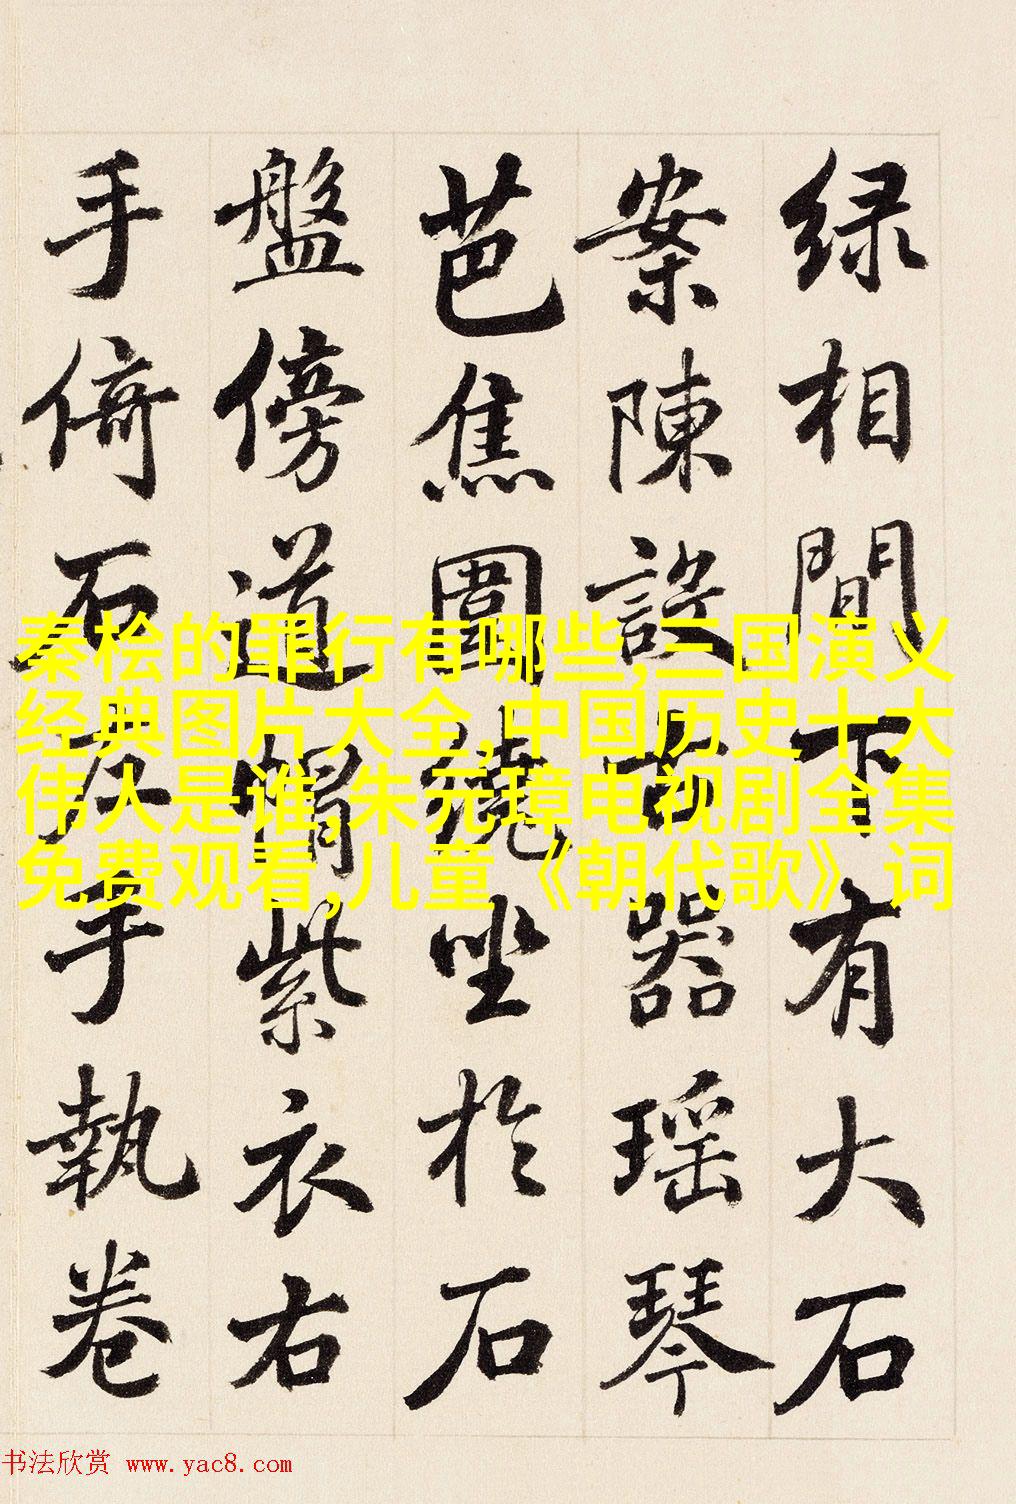 绿相間下有大石
案陳設古器瑶琴
芭焦圍繞坐於石
盤傍道帽紫衣右
手倚石左手執卷
秦桧的罪行有哪些,三国演义
经典图片大全,中国历史十大
伟人是谁,朱元璋电视剧全集
免费观看,儿童《朝代歌》词
书法欣赏 www.yac8.com